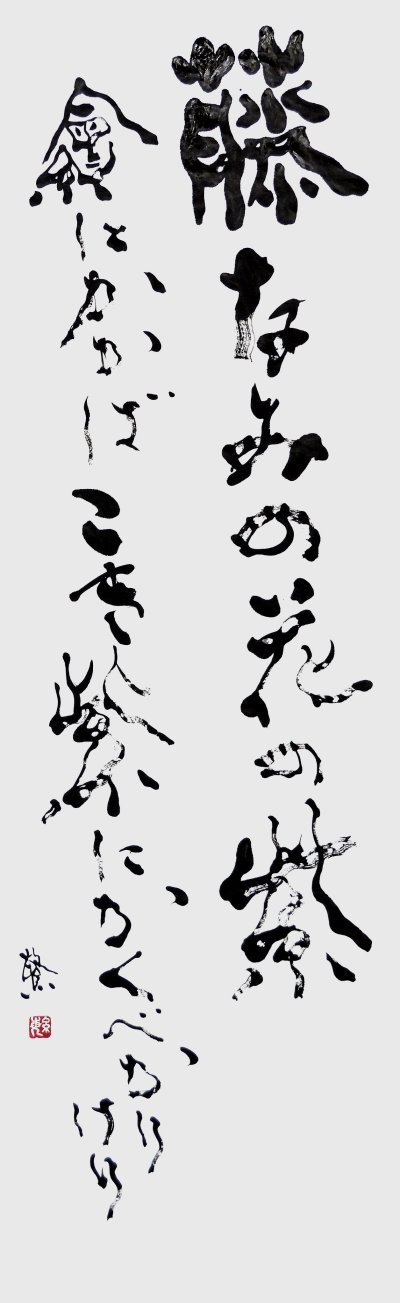 藤なみの花の紫
繪にかかばこき紫にかくべかりけり